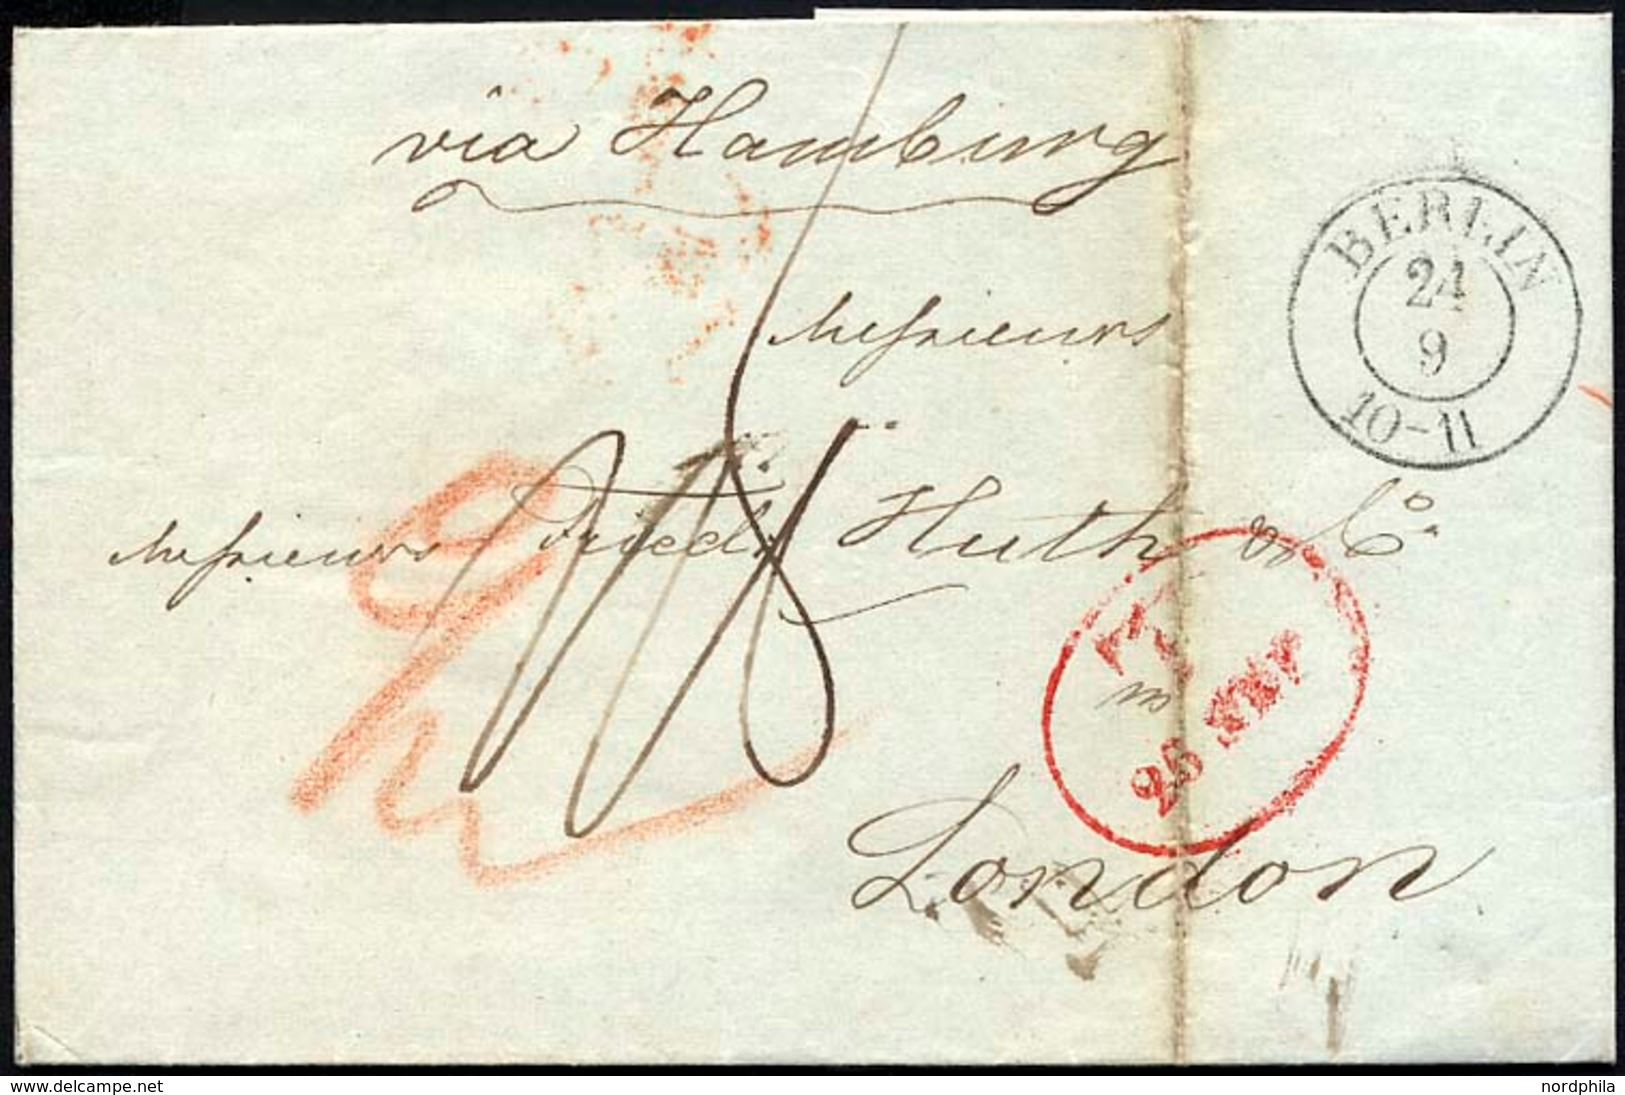 via Hamburg
BERLIN
24
9
10-11
Messieurs
Messieurs Friedk Huth & Co.
25
London
www.delcampe.net
nordphila